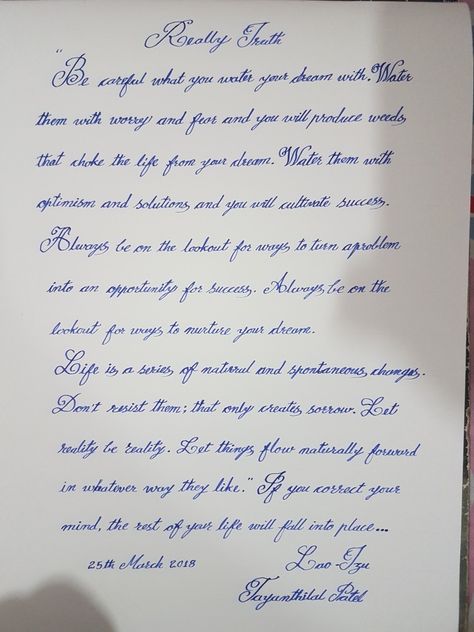 Really Truth
"Be careful what you water your dream with. Water
them with worry and fear and you will produce weeds
that choke the life from your dream. Water them with
optimism and solutions and you will cultivate success.
Always be on the lookout for ways to turn a problem
into an opportunity for success. Always be on the
lookout for ways to nurture your dream.
Life is a series of natural and spontaneous changes.
Don't resist them; that only creates sorrow. Let
reality be reality. Let things flow naturally forward
in whatever way they like." If you correct your
mind, the rest of your life will fall into place...
25th March 2018
Lao-Tzu
Patel